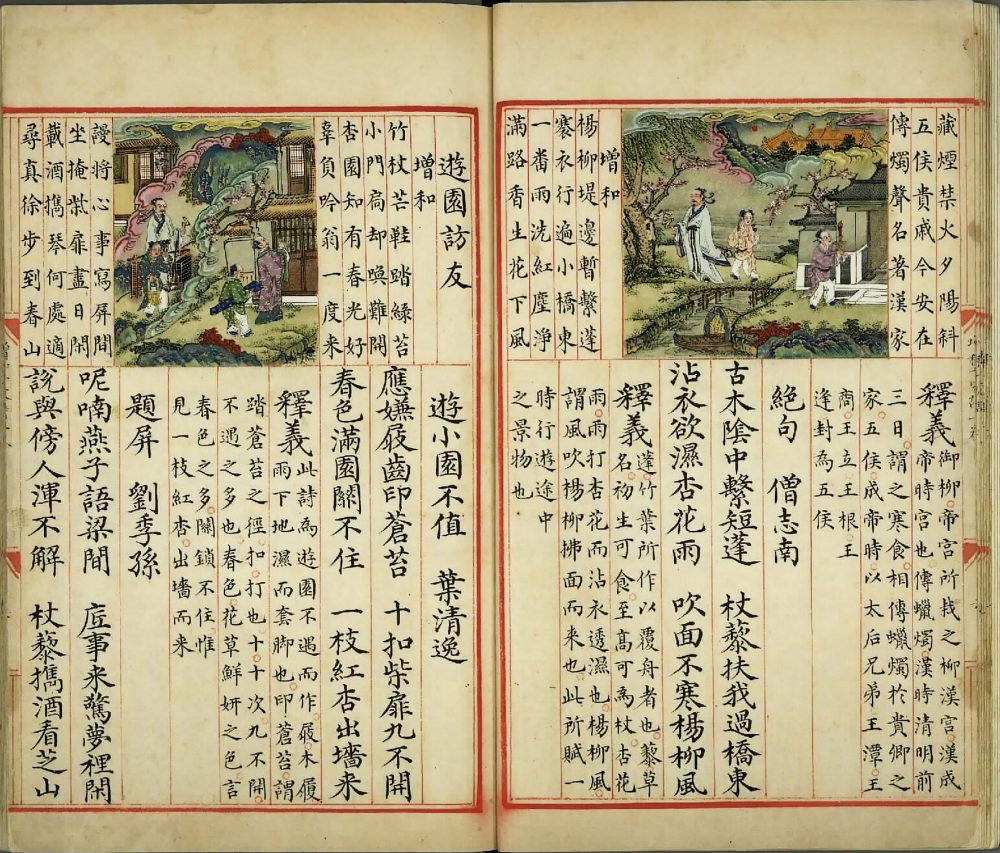 藏煙禁火夕陽斜
五侯貴戚今安在
傳燭聲名著漢家
釋義 御柳帝宮所栽之柳漢宮漢成
帝時宮也傳蠟燭漢時清明前
三日謂之寒食相傳蠟燭於貴卿之
家五侯成帝時以太后兄弟王潭王
商王立王根王
逢封為五侯
增和
楊柳堤邊暫繫蓬
褰衣行遍小橋東
一番雨洗紅塵淨
滿路香生花下風
絕句 僧志南
古木陰中繫短蓬 杖藜扶我過橋東
沾衣欲濕杏花雨 吹面不寒楊柳風
釋義 蓬竹葉所作以覆舟者也藜草
名初生可食至高可為杖杏花
雨雨打杏花而沾衣透濕也楊柳風
謂風吹楊柳拂面而来也此所賦一
時行遊途中
之景物也
遊園訪友
增和
竹杖芒鞋踏綠苔
小門扃却喚難開
杏園知有春光好
辜負吟翁一度来
遊小園不值 葉清逸
應嫌屐齒印蒼苔 十扣柴扉九不開
春色滿園關不住 一枝紅杏出墻来
釋義 此詩為遊園不遇而作屐木履
雨下地濕而套脚也印蒼苔謂
踏蒼苔之徑扣打也十十次九不開
不遇之多也春色花草鮮妍之色言
春色之多關鎖不住惟
見一枝紅杏出墻而来
謾將心事寫屏間
坐掩柴扉盡日閑
載酒攜琴何處適
尋真徐步到春山
題屏 劉季孫
呢喃燕子語梁間 底事来驚夢裡閑
說與傍人渾不解 杖藜攜酒看芝山